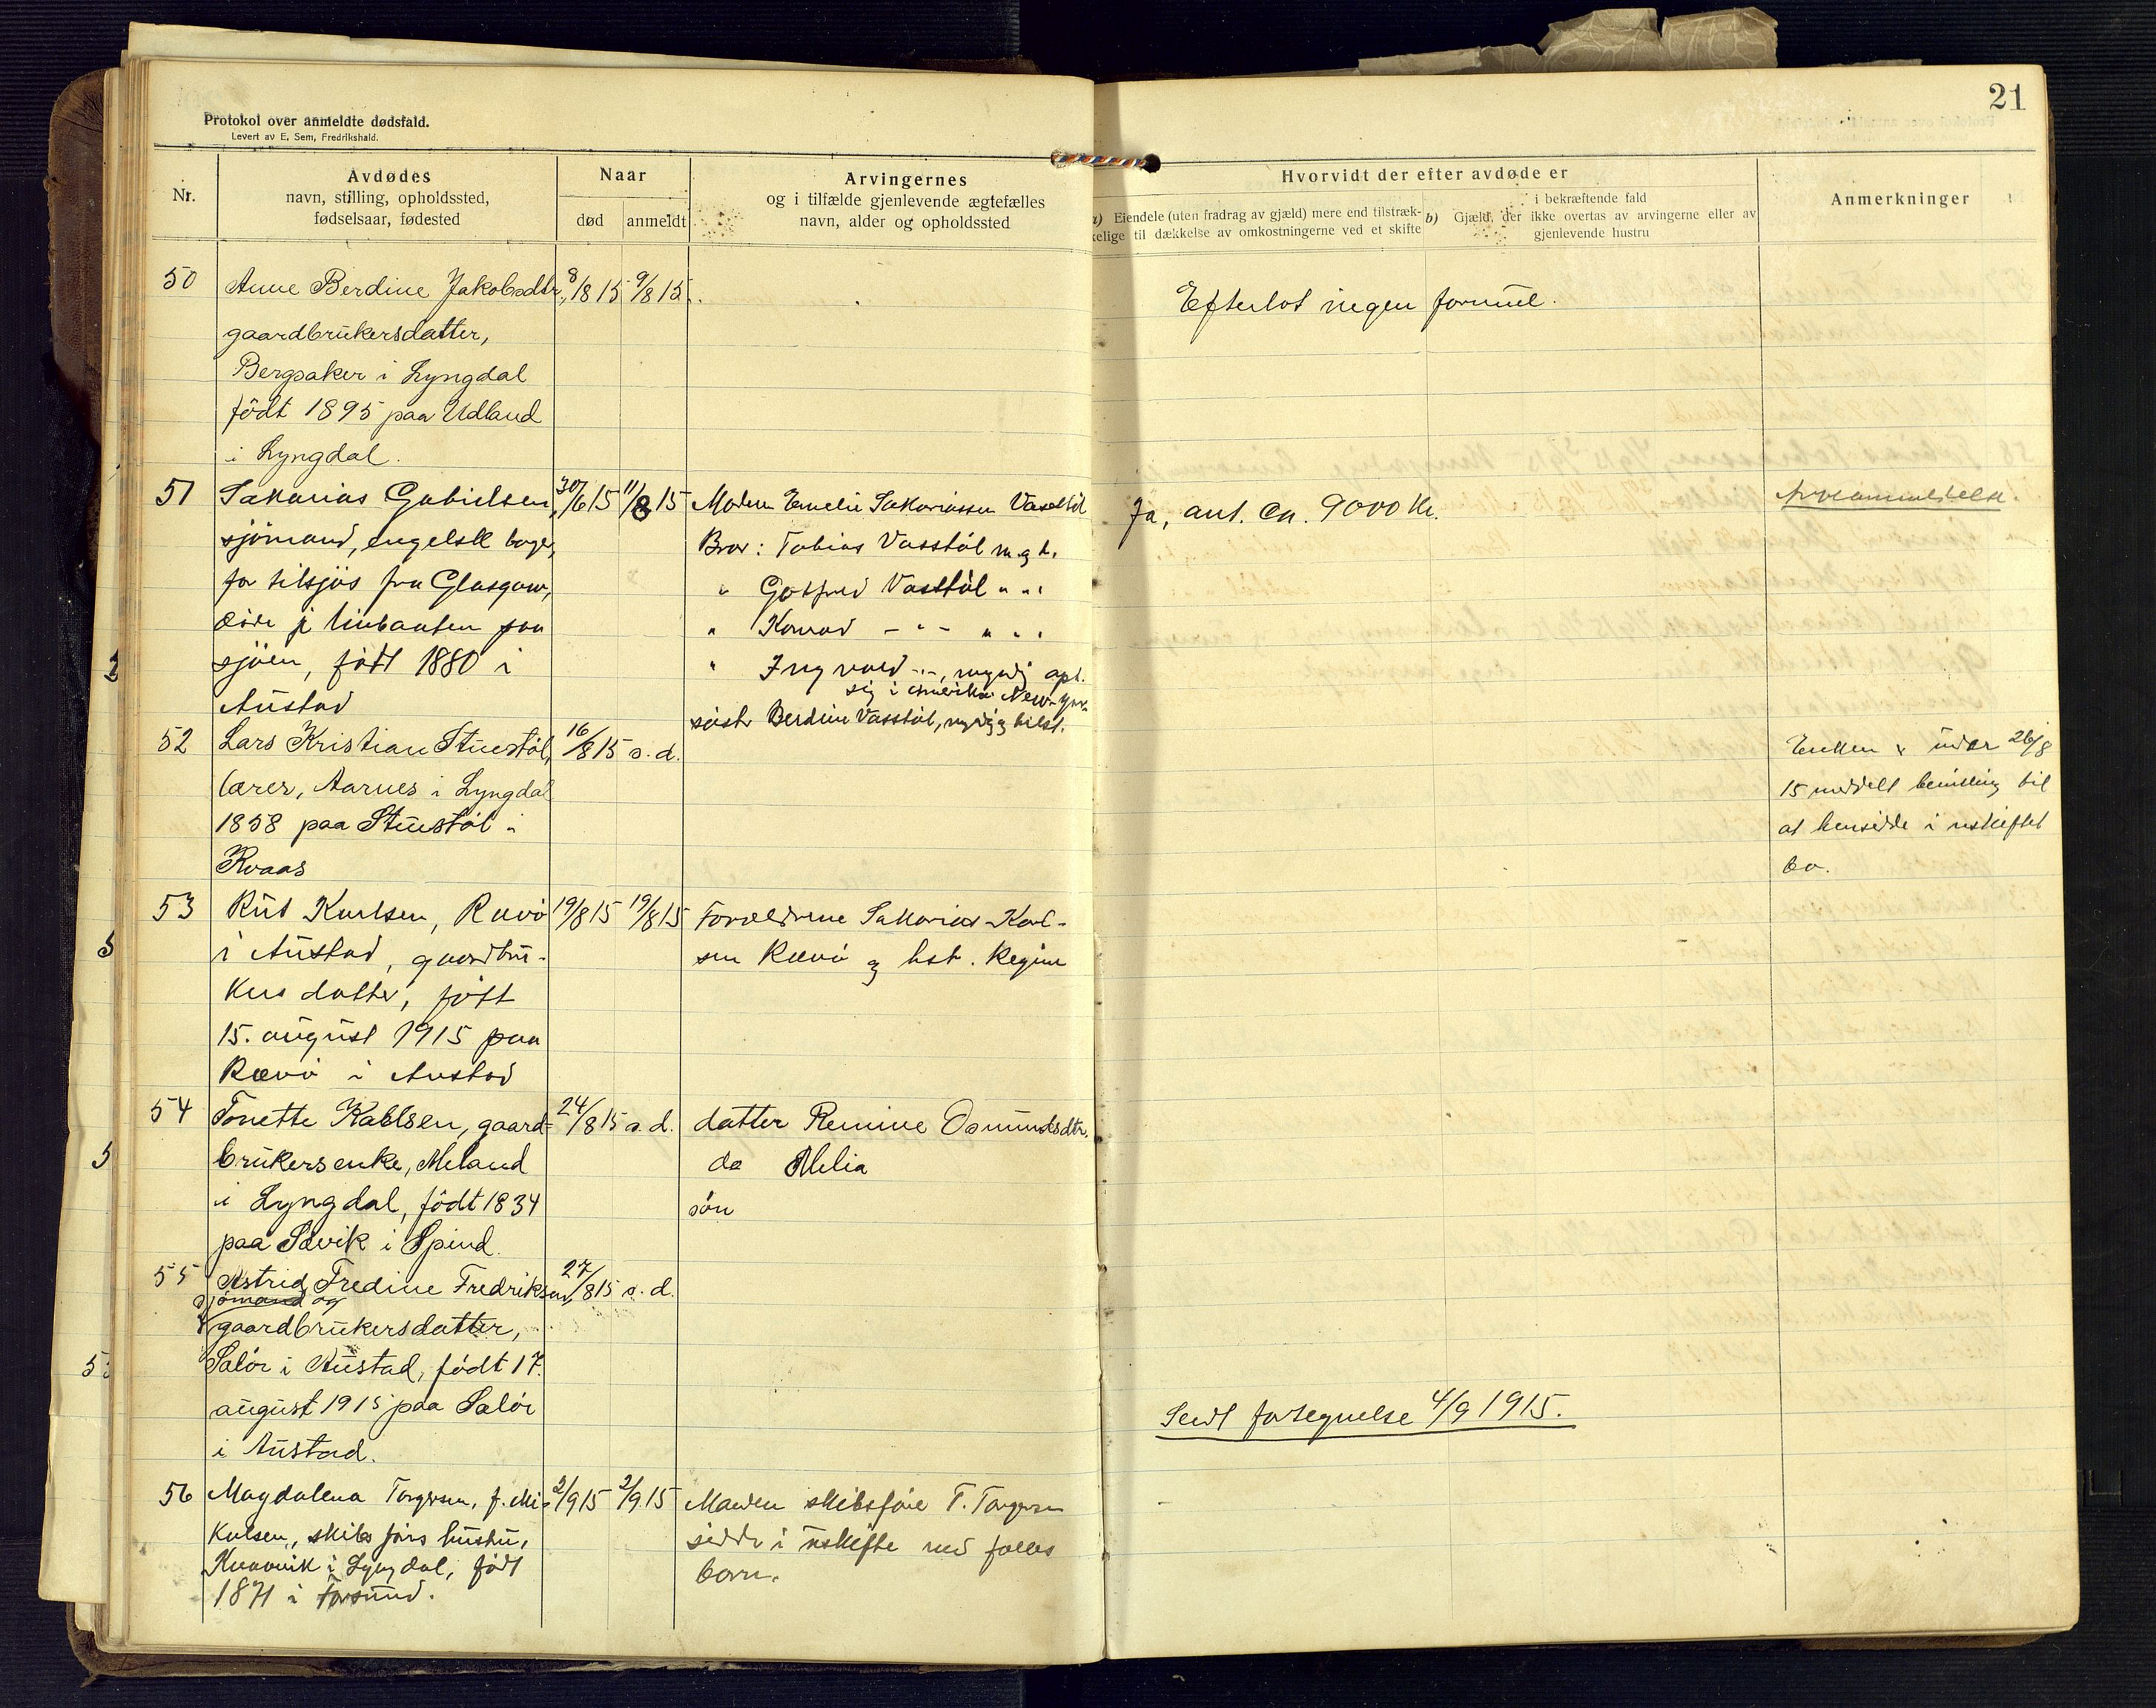 21
Protokol over anmeldte dødsfald.
Levert av E. Sem, Fredrikshald.
Nr.
Avdødes
navn, stilling, opholdssted,
fødselsaar, fødested
Naar
død
anmeldt
Arvingernes
og i tilfælde gjenlevende ægtefælles
navn, alder og opholdssted
Hvorvidt der efter avdøde er
a) Eiendele (uten fradrag av gjæld) mere end tilstræk-
kelige til dækkelse av omkostningerne ved et skifte
b) Gjæld, der
i bekræftende fald
ikke overtas av arvingerne eller av
gjenlevende hustru
Anmerkninger
50
Anne Berdine Jakobsdtr.,
8/8 15
9/8 15
Efterlot ingen formue.
gaardbrukersdatter,
Bergsaker i Lyngdal
født 1895 paa Udland
i Lyngdal.
51
Sakarias Gabrielsen,
30/6 15
11/8 15
Moderen Emelie Sakariassen Vasstöl
Ja, ant. ca. 9000 kr.
sjömand, engelsk
Bror: Tobias Vasstöl m. g. t.
for tilsjös fra Glasgow,
" Gotfred Vasstöl " " "
döde paa
" Konrad - " - " " "
sjöen, födt 1880 i
" Ingvald - " -, myndig opl.
sig i Amerika New-York
Austad
söster Berdine Vasstöl, myndig
52
Lars Kristian Stuestöl,
16/8 15
s. d.
Enken er under 26/8
lærer, Aarnes i Lyngdal
15 meddelt bevilling til
1858 paa Stuestöl i
at hensidde i uskiftet
Kvaas
bo.
53
Rut Karlsen, Rævö
19/8 15
19/8 15
Forældrene Sakarias Karl-
i Austad, gaardbru-
sen Rævö og hst. Regine
kersdatter, födt
15. august 1915 paa
Rævö i Austad
54
Tonette Kahlsen, gaard-
24/8 15
s. d.
datter Remine Osmundsdtr.
brukersenke, Meland
do Melia
i Lyngdal, födt 1834
sön
paa Sævik i Spind.
55
Astrid Fredine Fredriksen,
27/8 15
s. d.
sjömand og
gaardbrukersdatter,
Salör i Austad, födt 17.
august 1915 paa Salör
Sendt fortegnelse 4/9 1915.
i Austad.
56
Magdalena Torgersen, f. Mi-
2/9 15
2/9 15
Manden skibsförer T. Torgersen
kalsen, skibsförers hustru,
sidder i uskifte med fælles
Kvavik i Lyngdal, födt
börn.
1871 i Farsund.